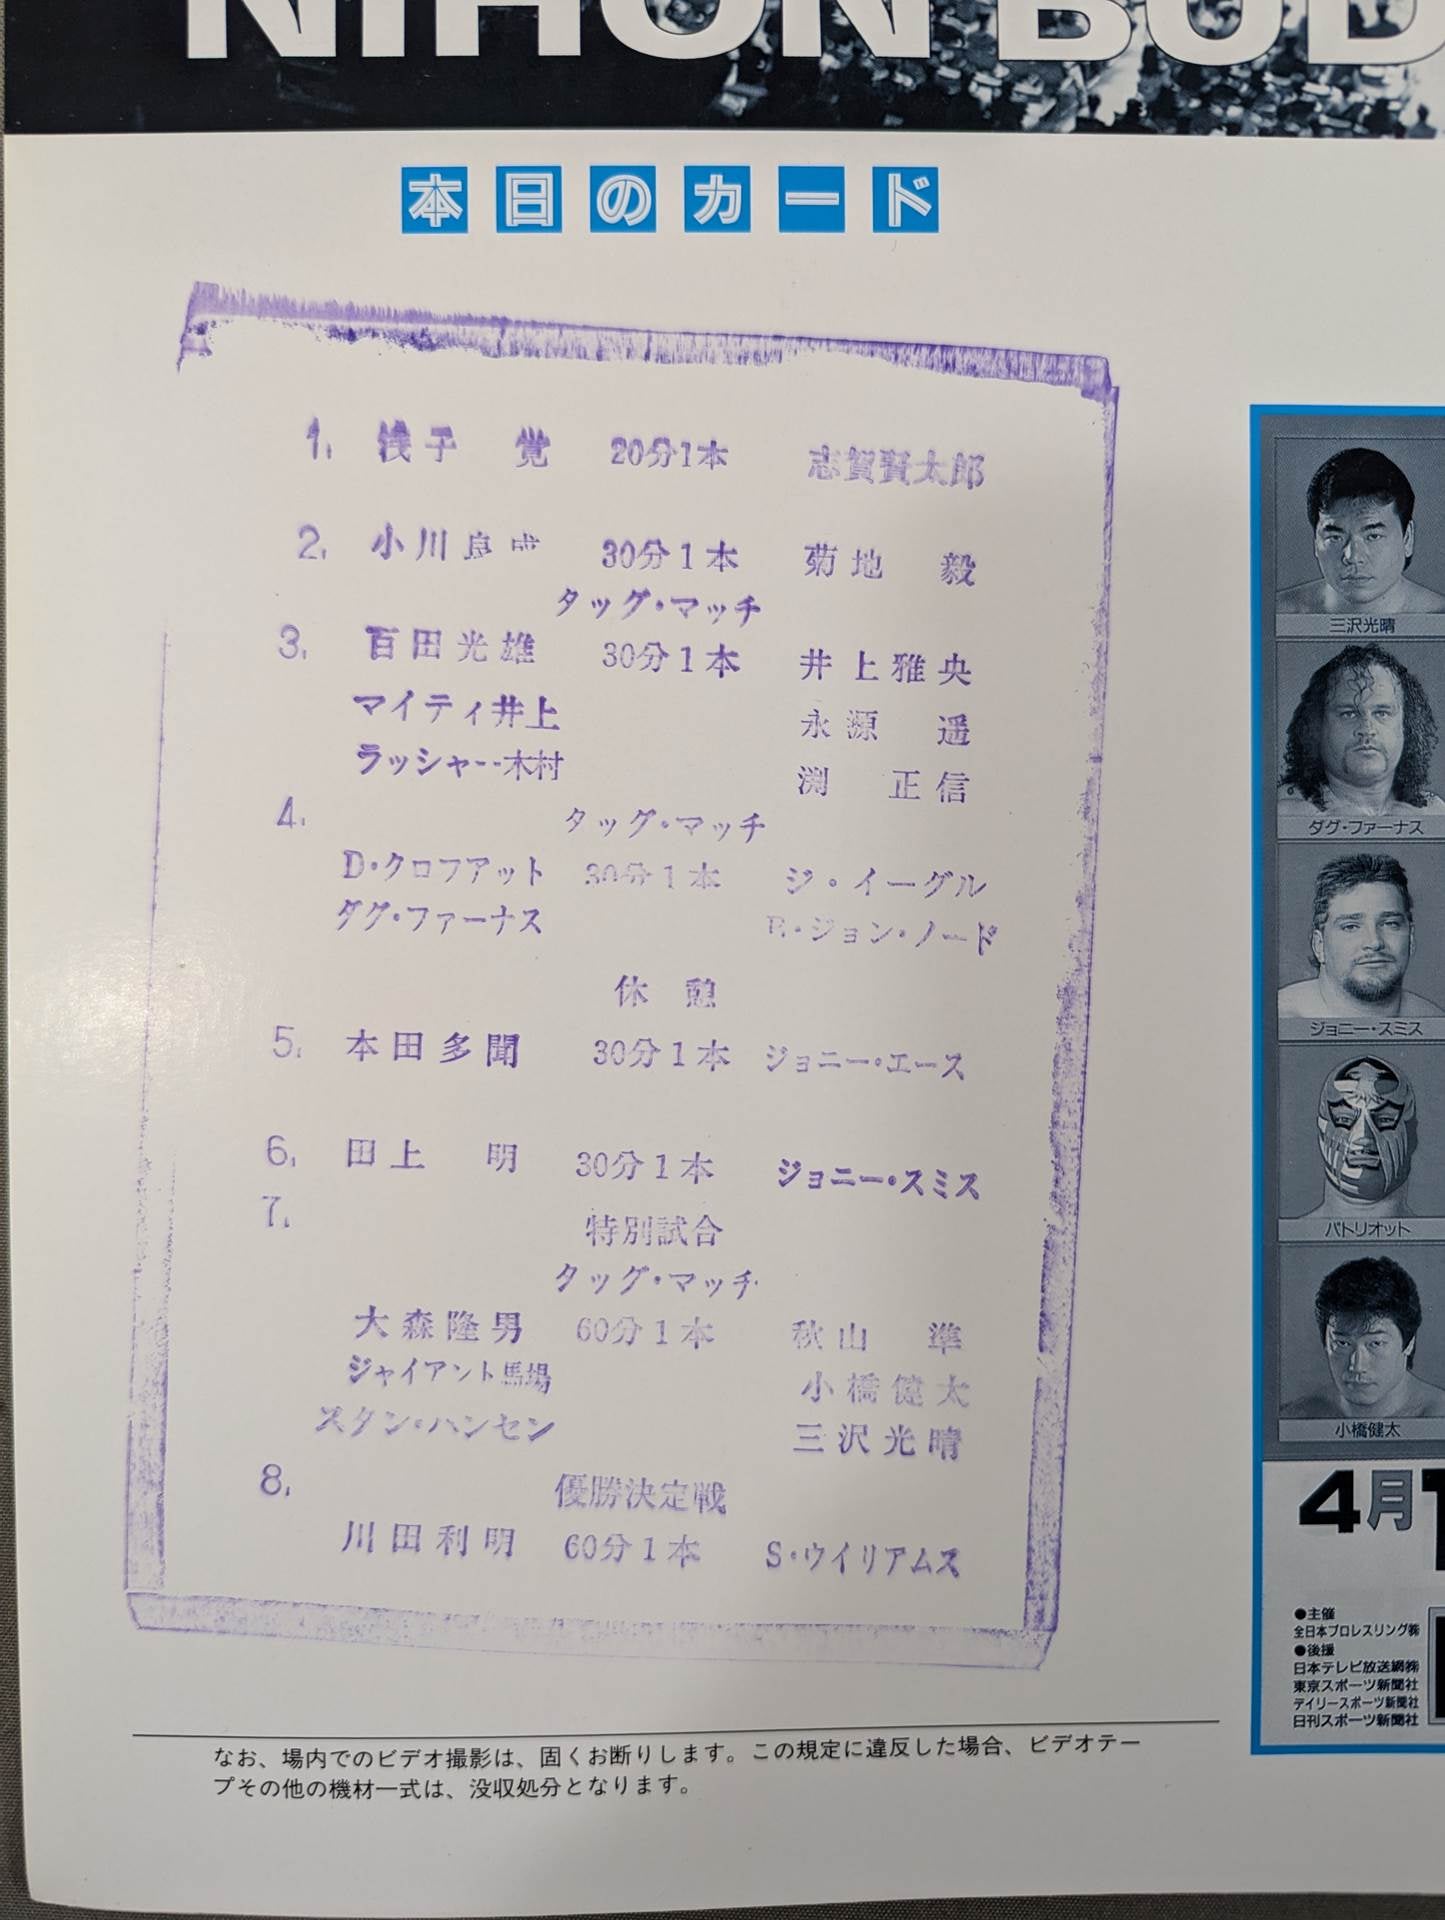 NIHON BUD
本日のカード
1. 浅子 覚 20分1本 志賀賢太郎
2. 小川良成 30分1本 菊地 毅
タッグ・マッチ
3. 百田光雄 30分1本 井上雅央
マイティ井上 永源 遥
ラッシャー木村 渕 正信
4. タッグ・マッチ
D・クロファット 30分1本 ジ・イーグル
ダグ・ファーナス ジョン・ノード
休憩
5. 本田多聞 30分1本 ジョニー・エース
6. 田上 明 30分1本 ジョニー・スミス
7. 特別試合
タッグ・マッチ
大森隆男 60分1本 秋山 準
ジャイアント馬場 小橋健太
スタン・ハンセン 三沢光晴
8. 優勝決定戦
川田利明 60分1本 S・ウイリアムス
なお、場内でのビデオ撮影は、固くお断りします。この規定に違反した場合、ビデオテー
プその他の機材一式は、没収処分となります。
三沢光晴
ダグ・ファーナス
ジョニー・スミス
パトリオット
小橋健太
4月1
●主催
全日本プロレスリング㈱
●後援
日本テレビ放送網㈱
東京スポーツ新聞社
デイリースポーツ新聞社
日刊スポーツ新聞社